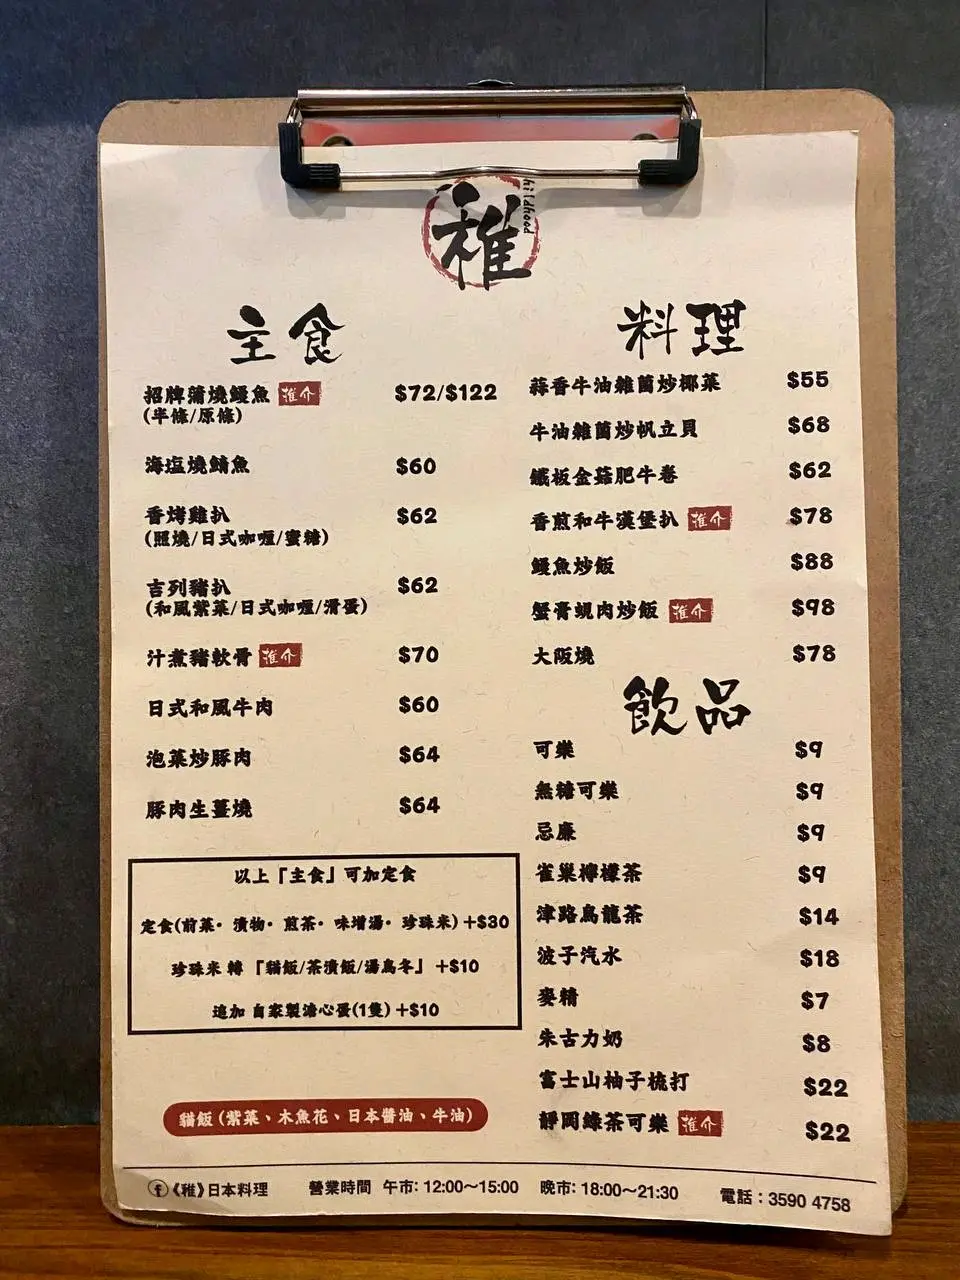 稚
hildhood
主食
招牌蒲燒鰻魚 推介 $72/$122
(半條/原條)
海塩燒鯖魚 $60
香烤雞扒 $62
(照燒/日式咖喱/蜜糖)
吉列豬扒 $62
(和風紫菜/日式咖喱/滑蛋)
汁煮豬軟骨 推介 $70
日式和風牛肉 $60
泡菜炒豚肉 $64
豚肉生薑燒 $64
以上「主食」可加定食
定食(前菜・漬物・煎茶・味增湯・珍珠米)+$30
珍珠米 轉 「貓飯/茶漬飯/湯烏冬」 +$10
追加 自家製溏心蛋(1隻)+$10
貓飯(紫菜、木魚花、日本醬油、牛油)
料理
蒜香牛油雜菌炒椰菜 $55
牛油雜菌炒帆立貝 $68
鐵板金菇肥牛卷 $62
香煎和牛漢堡扒 推介 $78
鰻魚炒飯 $88
蟹膏蜆肉炒飯 推介 $98
大阪燒 $78
飲品
可樂 $9
無糖可樂 $9
忌廉 $9
雀巢檸檬茶 $9
津路烏龍茶 $14
波子汽水 $18
麥精 $7
朱古力奶 $8
富士山柚子梳打 $22
靜岡綠茶可樂 推介 $22
《稚》日本料理 營業時間 午市: 12:00～15:00 晚市: 18:00～21:30 電話：3590 4758